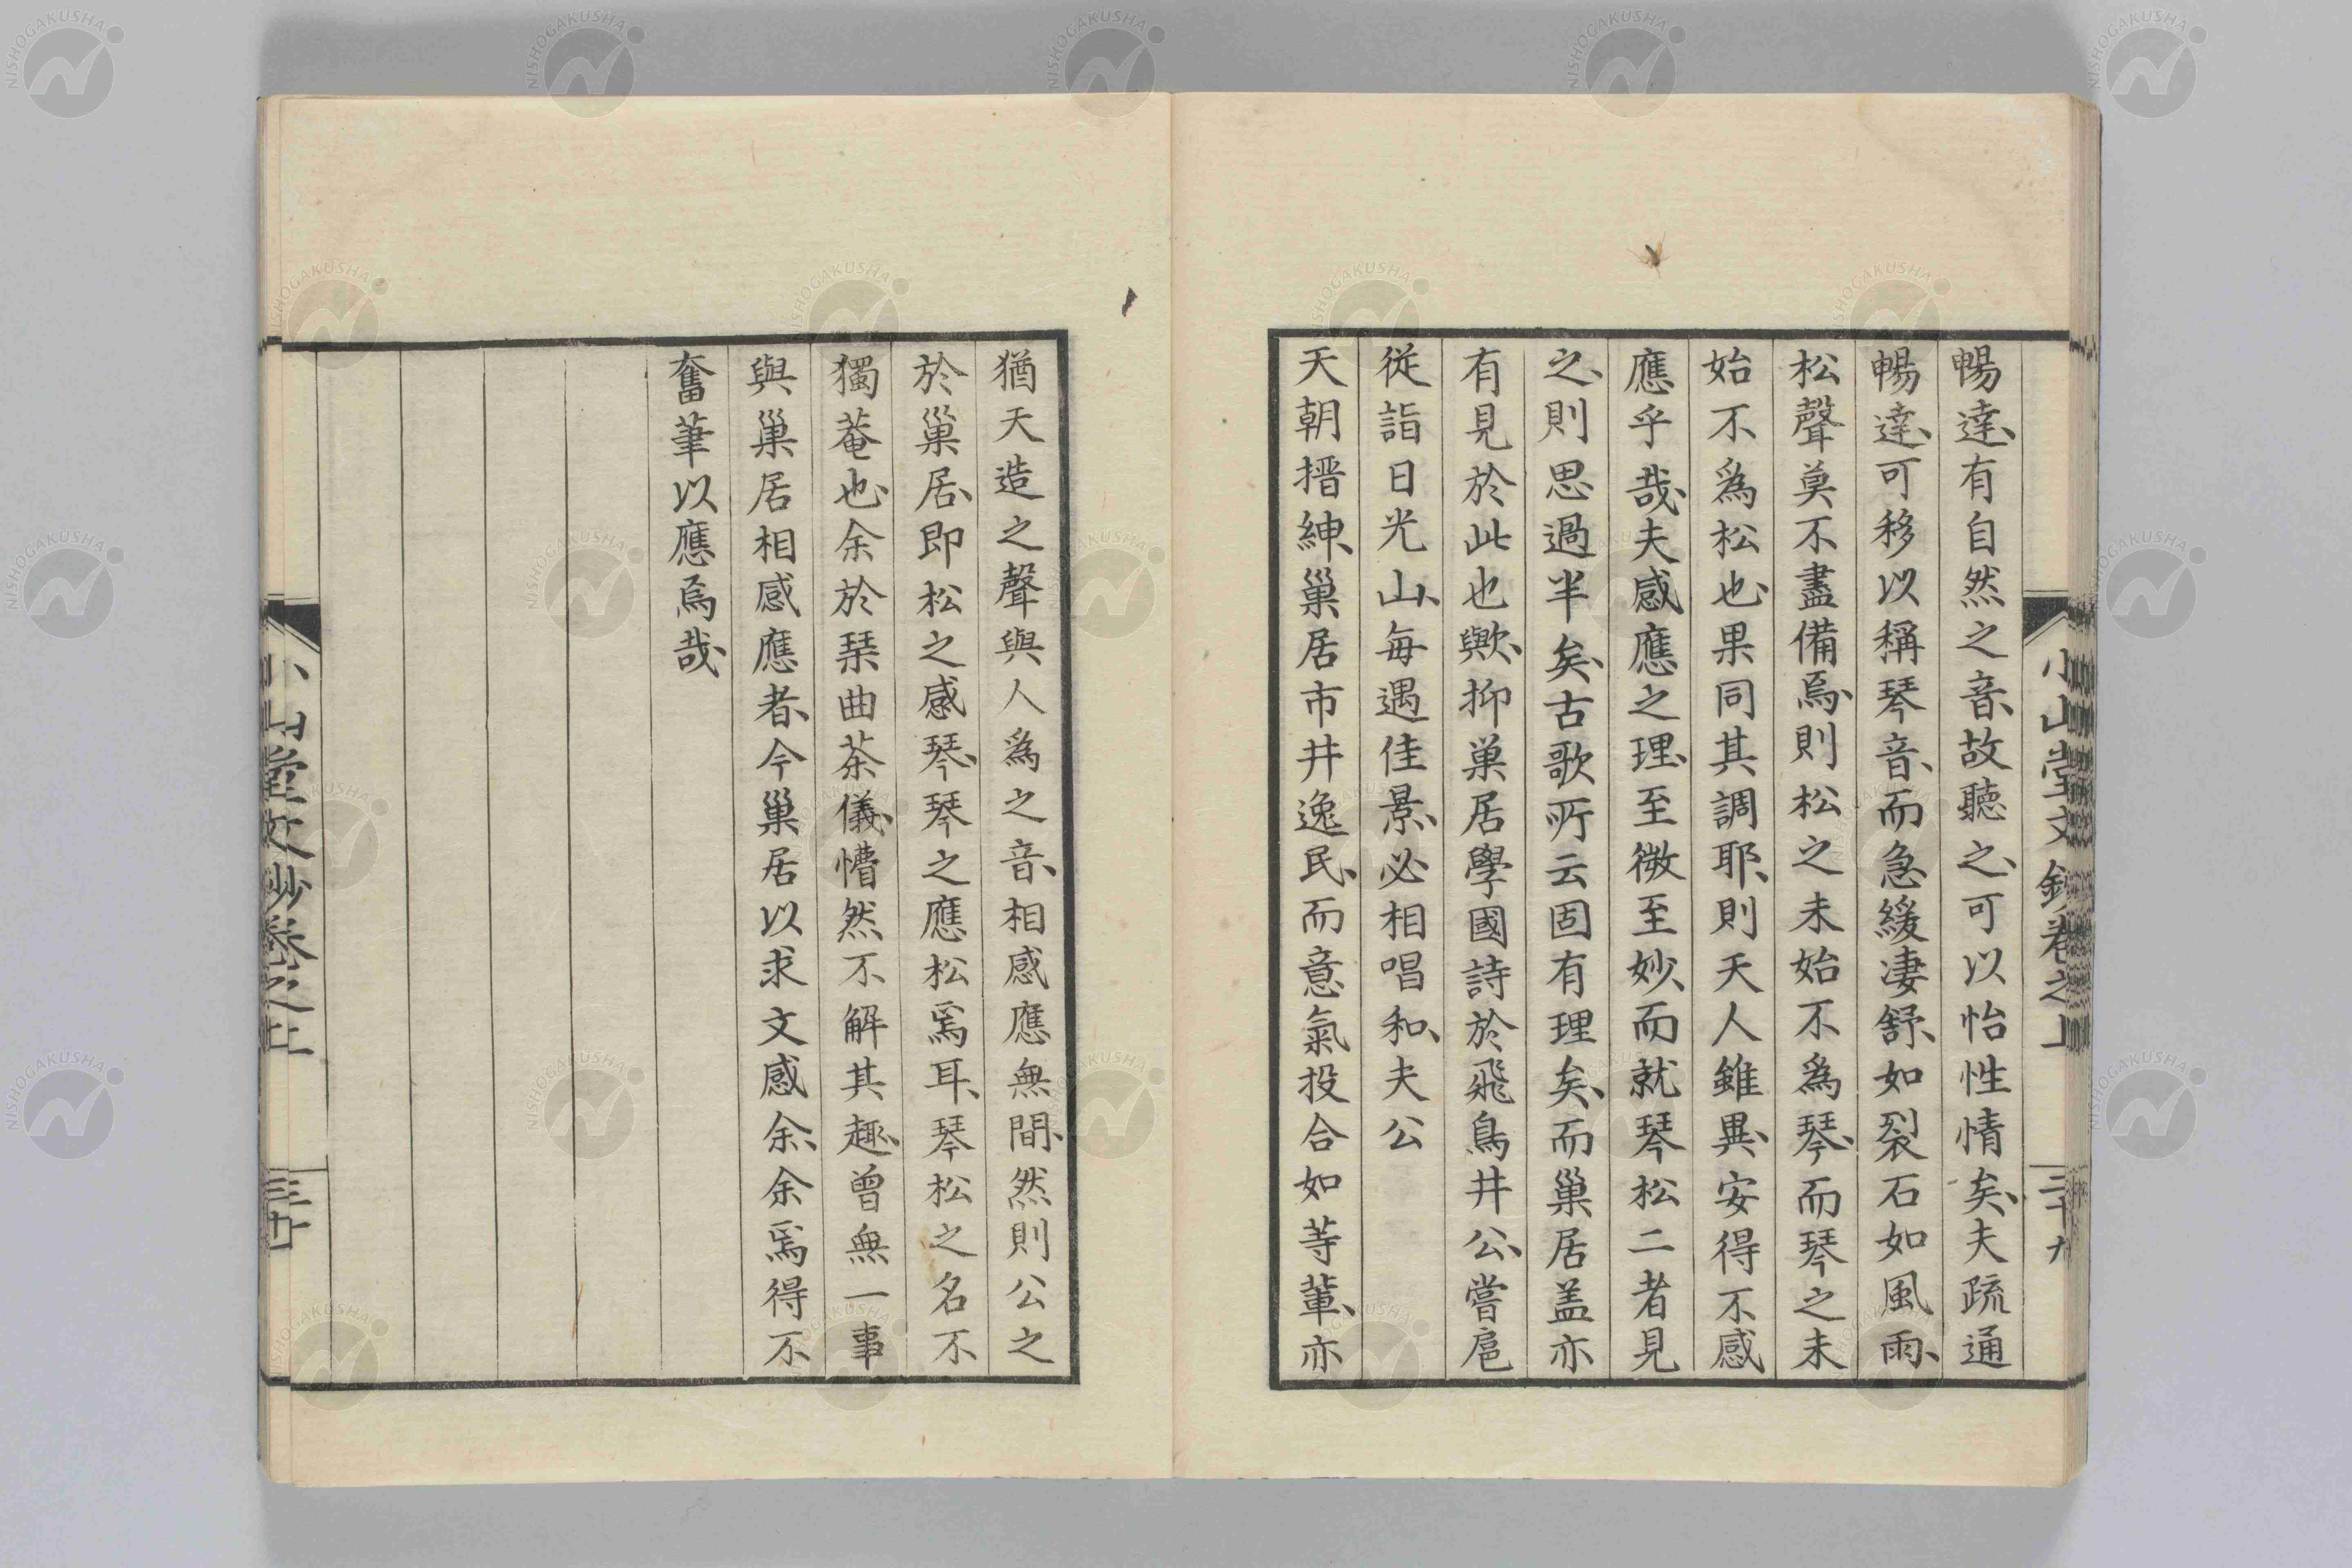 小山堂文鈔卷之上
三十九
暢達、有自然之音、故聽之、可以怡性情矣、夫疏通
暢達、可移以稱琴音、而急緩凄舒、如裂石如風雨、
松聲莫不盡備焉、則松之未始不為琴、而琴之未
始不爲松也、果同其調耶、則天人雖異、安得不感
應乎哉、夫感應之理、至微至妙、而就琴松二者見
之、則思過半矣、古歌所云固有理矣、而巢居盖亦
有見於此也歟、抑巢居學國詩於飛鳥井公、公嘗扈
從詣日光山、每遇佳景、必相唱和、夫公
天朝搢紳、巢居市井逸民、而意氣投合如等輩、亦
猶天造之聲與人爲之音、相感應無間、然則公之
於巢居、即松之感琴、琴之應松焉耳、琴松之名不
獨菴也、余於琹曲茶儀、懵然不解其趣、曾無一事
與巢居相感應者、今巢居以求文感余、余焉得不
奮筆以應焉哉、
小山堂文鈔卷之上
NISHOGAKUSHA